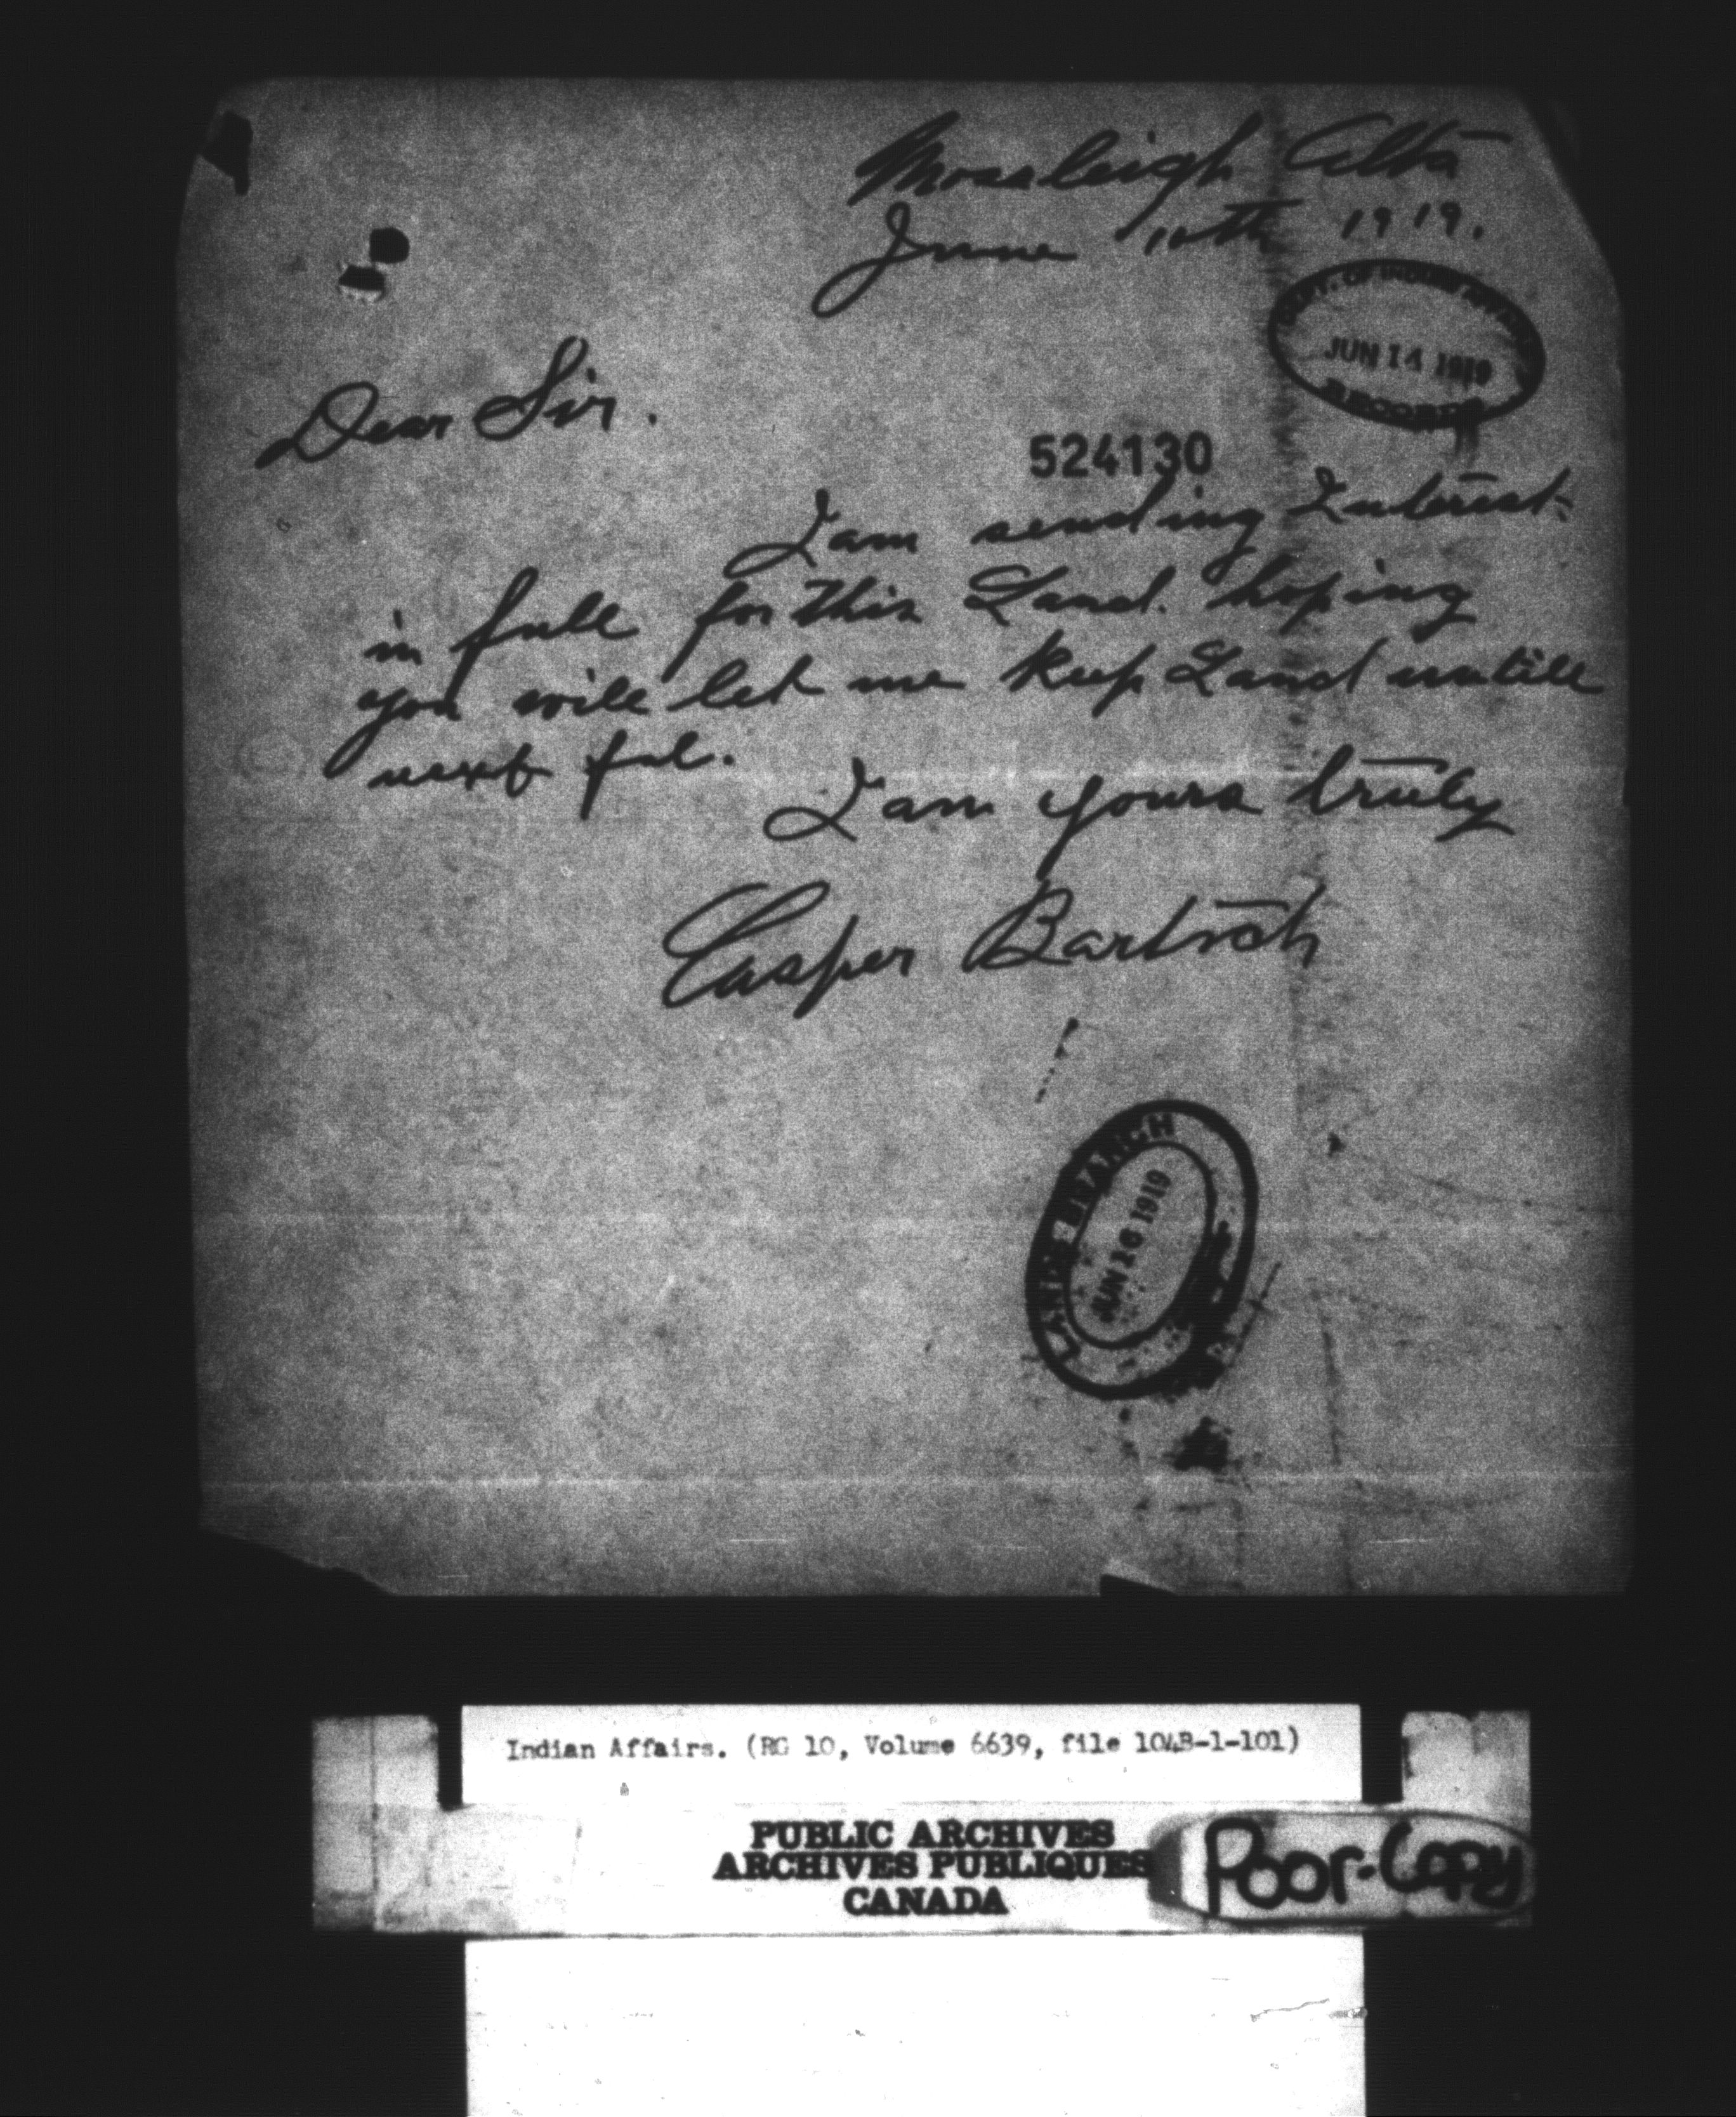 Mossleigh Alta
June 10th 1919.
DEPT. OF INDIAN AFFAIRS
JUN 14 1919
RECORDS
Dear Sir.
524130
I am sending Interest
in full for this Land. hoping
you will let me keep Land untill
next fal.
I am yours truly
Casper Bartsch
LANDS BRANCH
JUN 16 1919
Indian Affairs. (RG 10, Volume 6639, file 104B-1-101)
PUBLIC ARCHIVES
ARCHIVES PUBLIQUES
CANADA
Poor-Copy